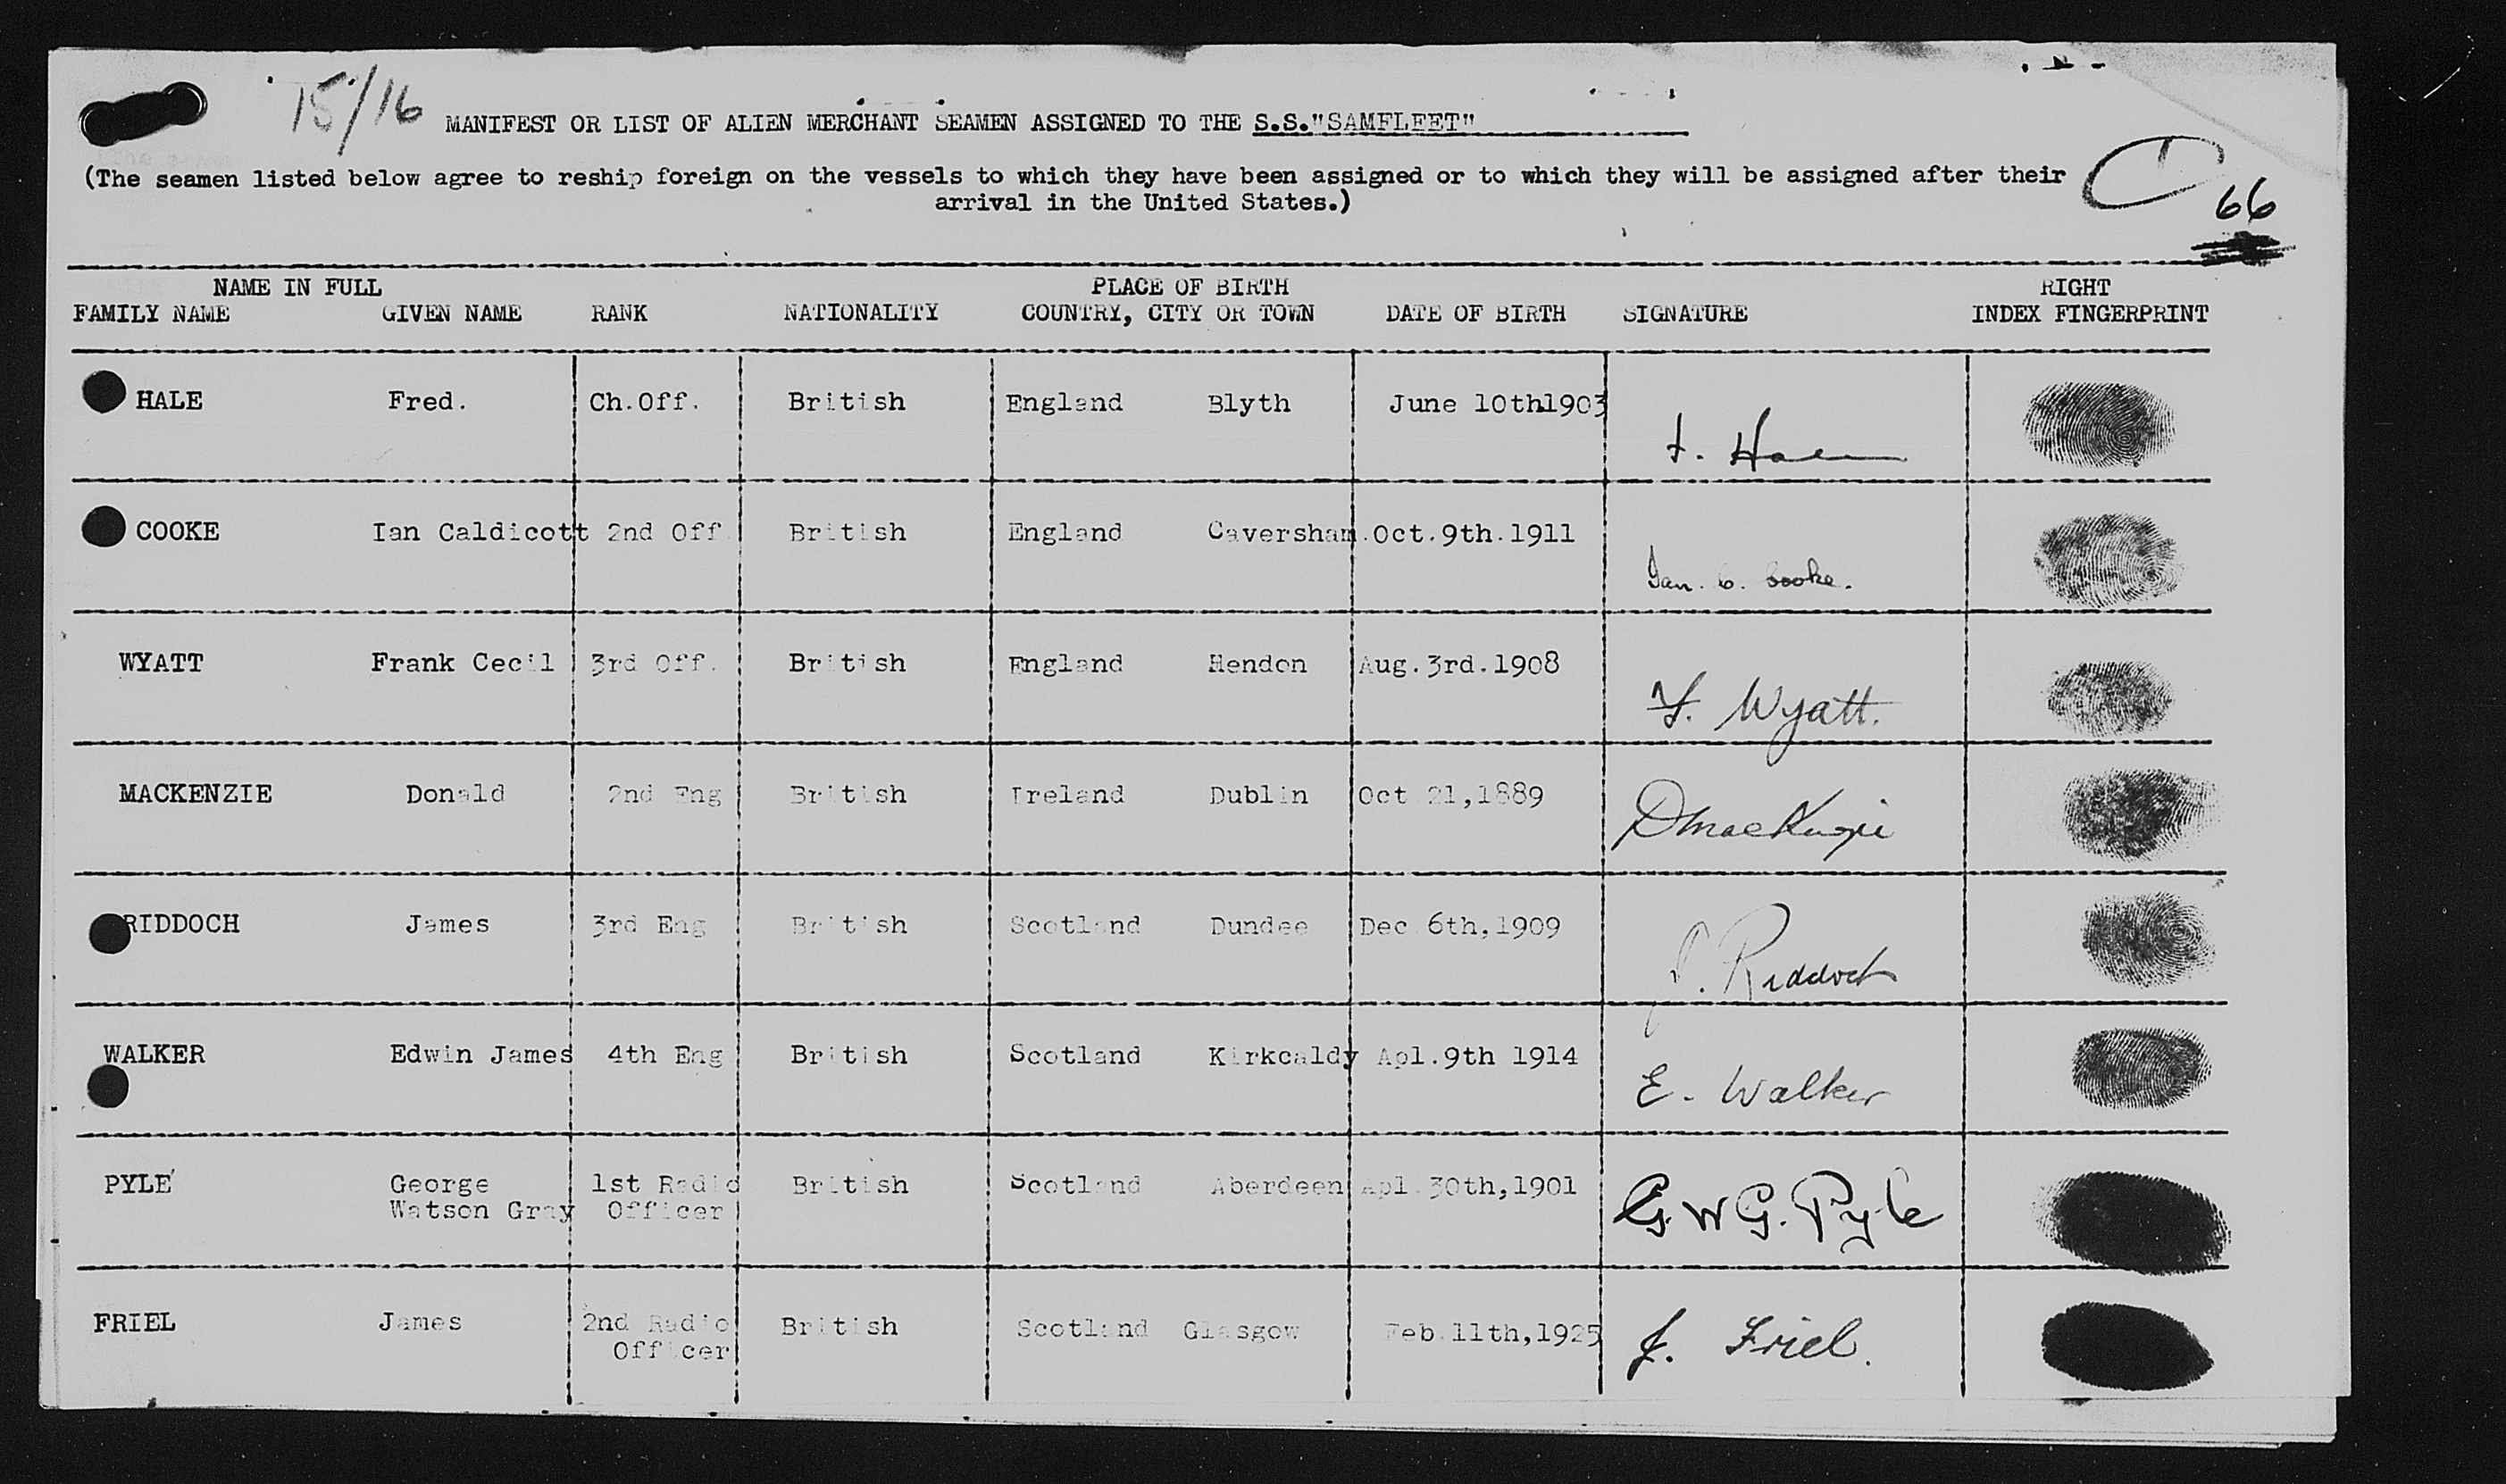 15/16
MANIFEST OR LIST OF ALIEN MERCHANT SEAMEN ASSIGNED TO THE S.S."SAMFLEET"
(The seamen listed below agree to reship foreign on the vessels to which they have been assigned or to which they will be assigned after their
arrival in the United States.)
66
NAME IN FULL PLACE OF BIRTH RIGHT
FAMILY NAME GIVEN NAME RANK NATIONALITY COUNTRY, CITY OR TOWN DATE OF BIRTH SIGNATURE INDEX FINGERPRINT
HALE Fred. Ch.Off. British England Blyth June 10th1903
F. Hale
COOKE Ian Caldicott 2nd Off British England Caversham.Oct.9th.1911
Ian. C. Cooke.
WYATT Frank Cecil 3rd Off. British England Hendon Aug.3rd.1908
F. Wyatt.
MACKENZIE Donald 2nd Eng British Ireland Dublin Oct 21,1889
DMacKenzie
RIDDOCH James 3rd Eng British Scotland Dundee Dec 6th,1909
J. Riddoch
WALKER Edwin James 4th Eng British Scotland Kirkcaldy Apl.9th 1914
E. Walker
PYLE George 1st Radio British Scotland Aberdeen Apl 30th,1901
Watson Gray Officer
G.W.G. Pyle
FRIEL James 2nd Radio British Scotland Glasgow Feb.11th,1925
Officer
J. Friel.